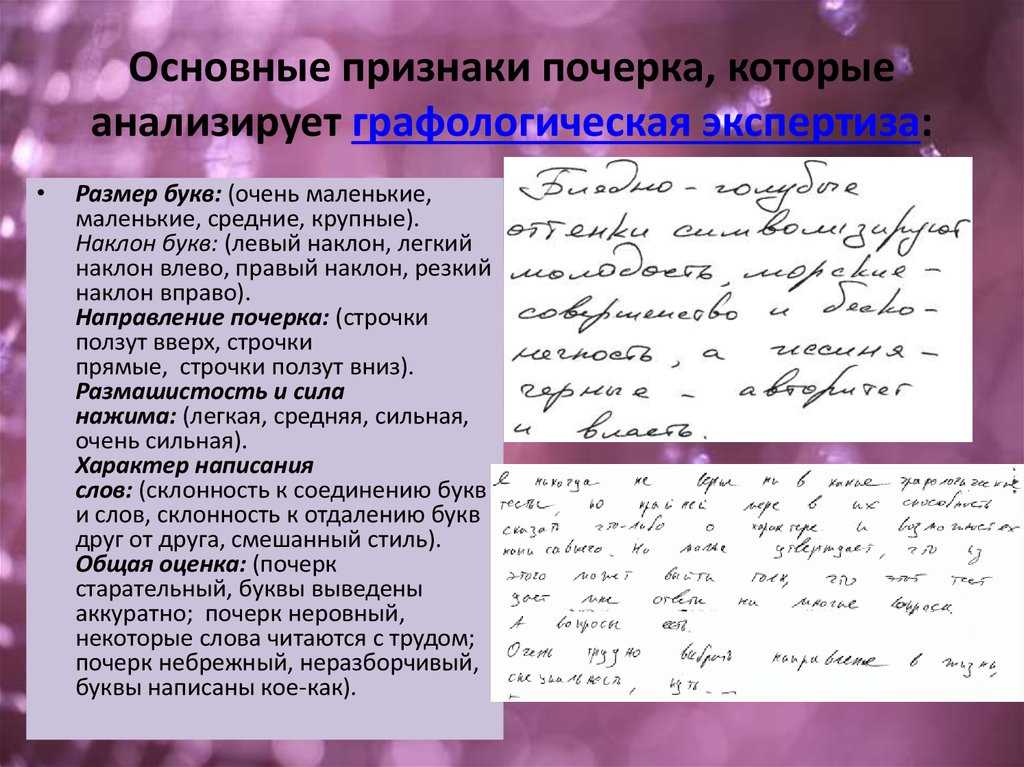 Основные признаки почерка, которые
анализирует графологическая экспертиза:
• Размер букв: (очень маленькие,
маленькие, средние, крупные).
Наклон букв: (левый наклон, легкий
наклон влево, правый наклон, резкий
наклон вправо).
Направление почерка: (строчки
ползут вверх, строчки
прямые, строчки ползут вниз).
Размашистость и сила
нажима: (легкая, средняя, сильная,
очень сильная).
Характер написания
слов: (склонность к соединению букв
и слов, склонность к отдалению букв
друг от друга, смешанный стиль).
Общая оценка: (почерк
старательный, буквы выведены
аккуратно; почерк неровный,
некоторые слова читаются с трудом;
почерк небрежный, неразборчивый,
буквы написаны кое-как).
Бледно-голубые
оттенки символизируют
молодость, морские –
совершенство и беско-
нечность, а иссиня-
черные – авторитет
и власть.
Я никогда не верил ни в какие графологические
тесты, по крайней мере в их способность
сказать что-либо о характере и возможностях
Но утверждает, что из
этого может выйти толк, что этот тест
дает мне ответы на многие вопросы.
А вопросы есть.
Очень трудно выбрать направление в жизни,
специальность,